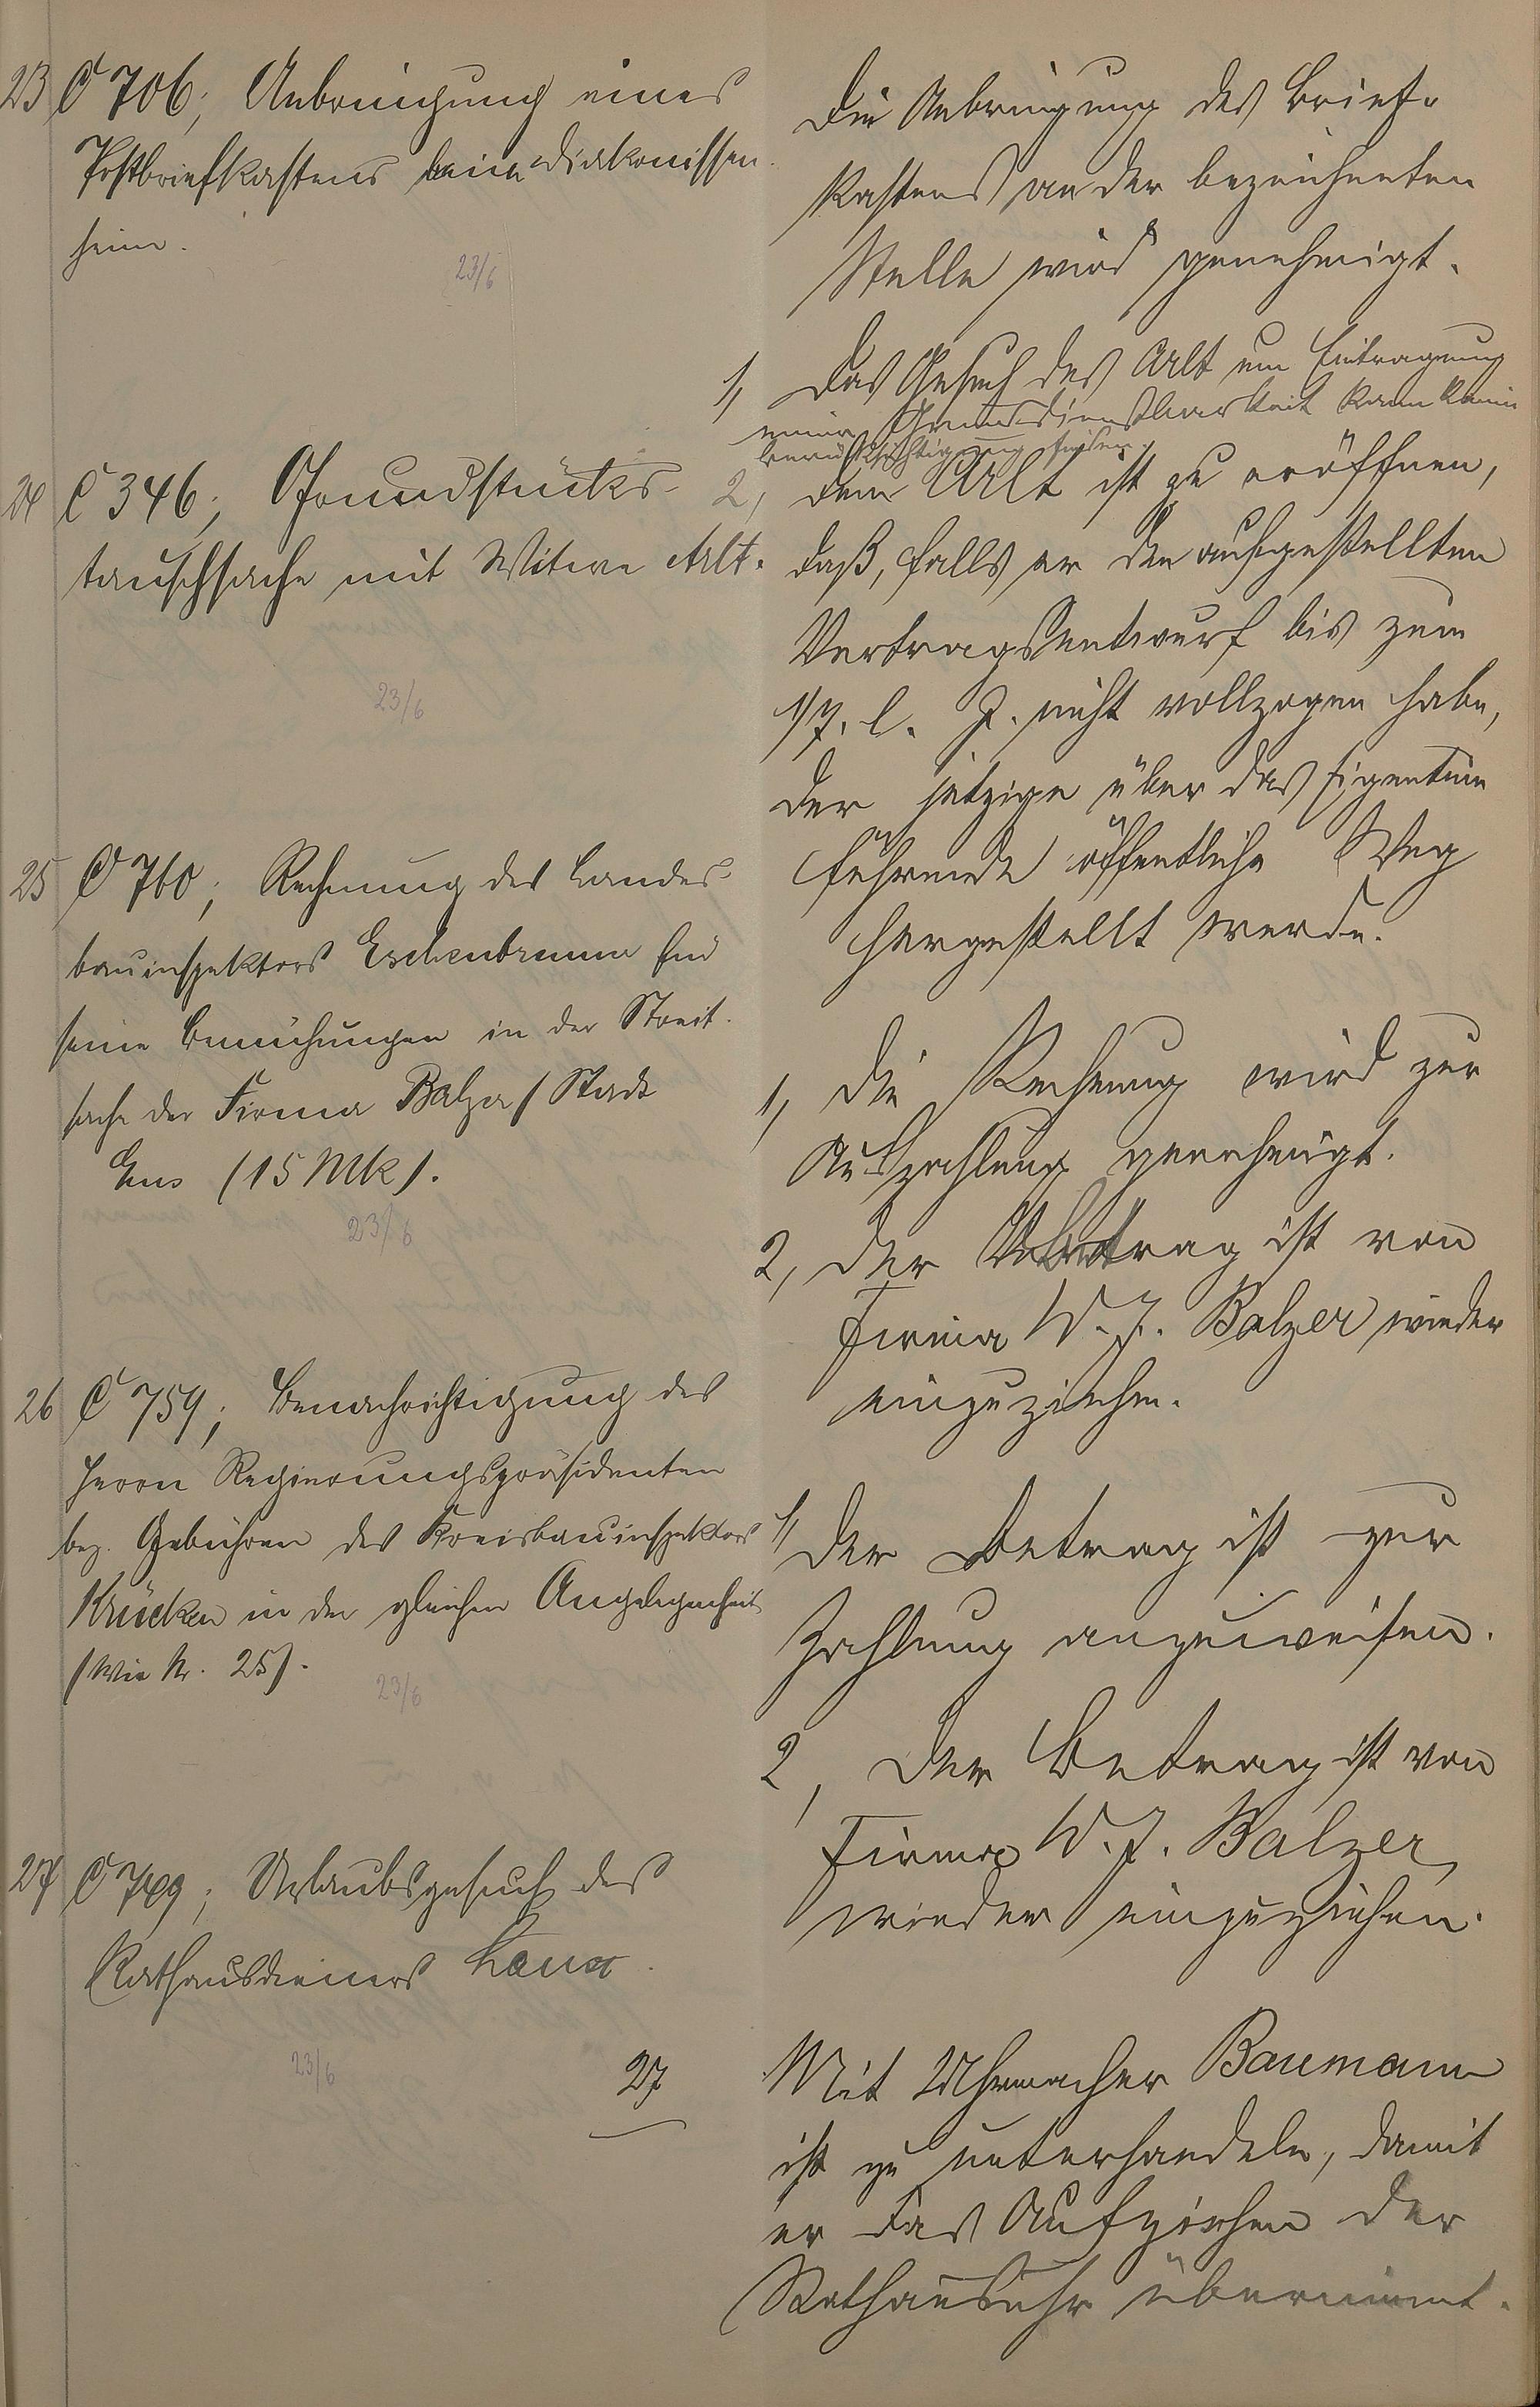 23 C 706; Anbringung eines
Postbriefkastens beim Diakonissen-
heim.
23/6
Die Anbringung des Brief-
kastens an der bezeichneten
Stelle wird genehmigt.
24 C 346; Grundstücks-
tauschsache mit Witwe Arlt.
23/6
1, Das Gesuch des Arlt um Eintragung
einer Grunddienstbarkeit kann keine
Berücksichtigung finden.
2, Dem Arlt ist zu eröffnen,
daß, falls er den aufgestellten
Vertragsentwurf bis zum
1/7. l. J. nicht vollzogen habe,
der jetzige über das Eigentum
führende öffentliche Weg
hergestellt werde.
25 C 760; Rechnung des Landes-
bauinspektors Eschenbrenner für
seine Bemühungen in der Streit-
sache der Firma Balzer / Stadt
Ems (15 Mk).
23/6
1, Die Rechnung wird zur
Auszahlung genehmigt.
2, Der Betrag ist von
Firma W. J. Balzer wieder
einzuziehen.
26 C 759; Benachrichtigung des
Herrn Regierungspräsidenten
bez. Gebühren des Kreisbauinspektors
Krücken in der gleichen Angelegenheit
(wie Nr. 25).
23/6
1, Der Betrag ist zur
Zahlung anzuweisen.
2, Der Betrag ist von
Firma W. J. Balzer
wieder einzuziehen.
27 C 749; Urlaubsgesuch des
Rathausdieners
23/6
27
Mit Uhrmacher Baumann
ist zu unterhandeln, damit
er das Aufziehen der
Rathausuhr übernimmt.